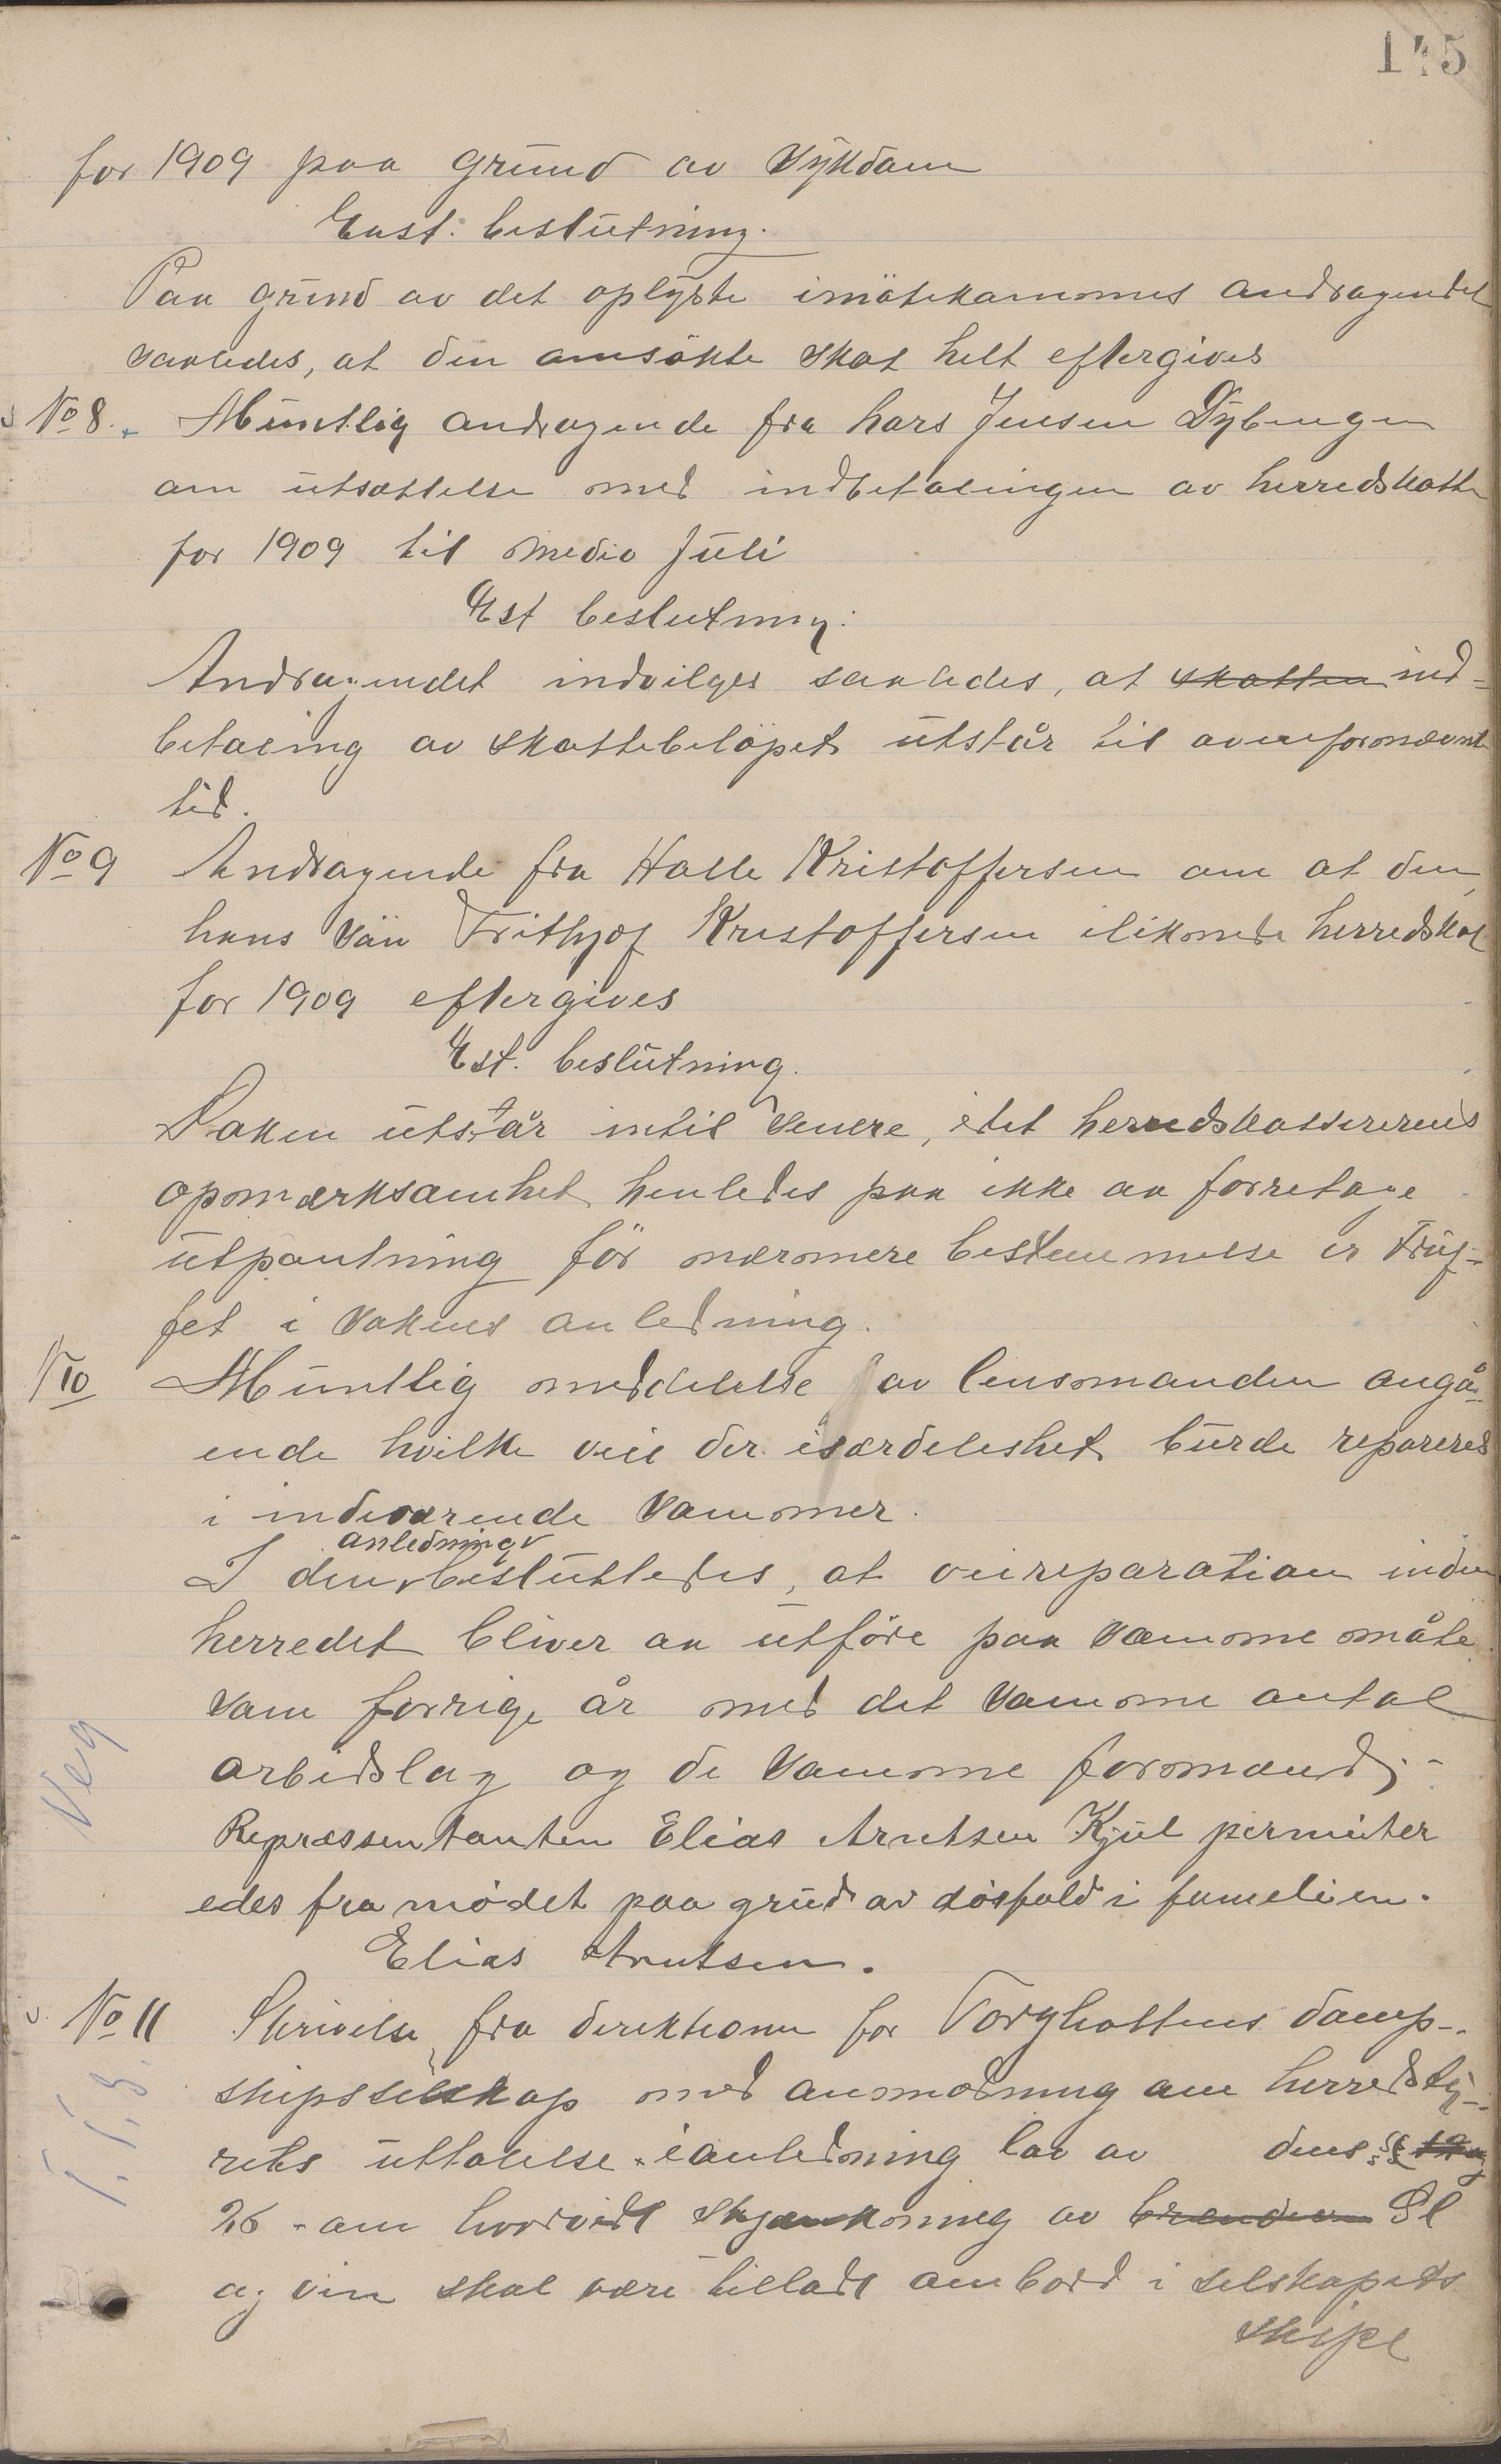 145
for 1909 paa grund av sykdom
Enst. beslutning.
Paa grund av det oplyste imötekommes andragendet
saaledes, at den omsökte skat helt eftergives
No 8. Muntlig andragende fra Lars Jensen Dybengen
om utsættelse med indbetalingen av herredskatte
for 1909 til medio Juli
Est beslutning:
Andragendet indvilges saaledes, at skatten ind-
betaling av skattebelöpet utstår til ovenfornævnt
tid.
No 9 Andragende fra Halle Kristoffersen om at den
hans sön Frithjof Kristoffersen iliknede herredskat
for 1909 eftergives
Est. beslutning.
Saken utstår intil senere, idet herredskassererens
opmærksomhet henledes paa ikke aa forretage
utpantning för nærmere bestemmelse er truf-
fet i sakens anledning.
N 10 Muntlig meddelelse av lensmanden angå-
ende hvilke veie der isærdeleshet burde repareres
i indeværende sommer.
anledning
I den besluttedes, at veireparation inden
herredet bliver aa utföre paa samme måte
som forrige år med det samme antal
arbeidslag og de samme formænd;-
Veg
Repræssentanten Elias Arntsen Kjul permiter
edes fra mödet paa grund av dösfald i familien.
Elias Arntsen.
No 11 Skrivelse fra direktionen for Torghattens damp-
skipsselskap med anmodning om herredsty-
rets uttalelse ianledning lov av dens §§
26 - om hvorvidt skjænkning av brændev Øl
og vin skal være tilladt ombord i selskapets
skipe